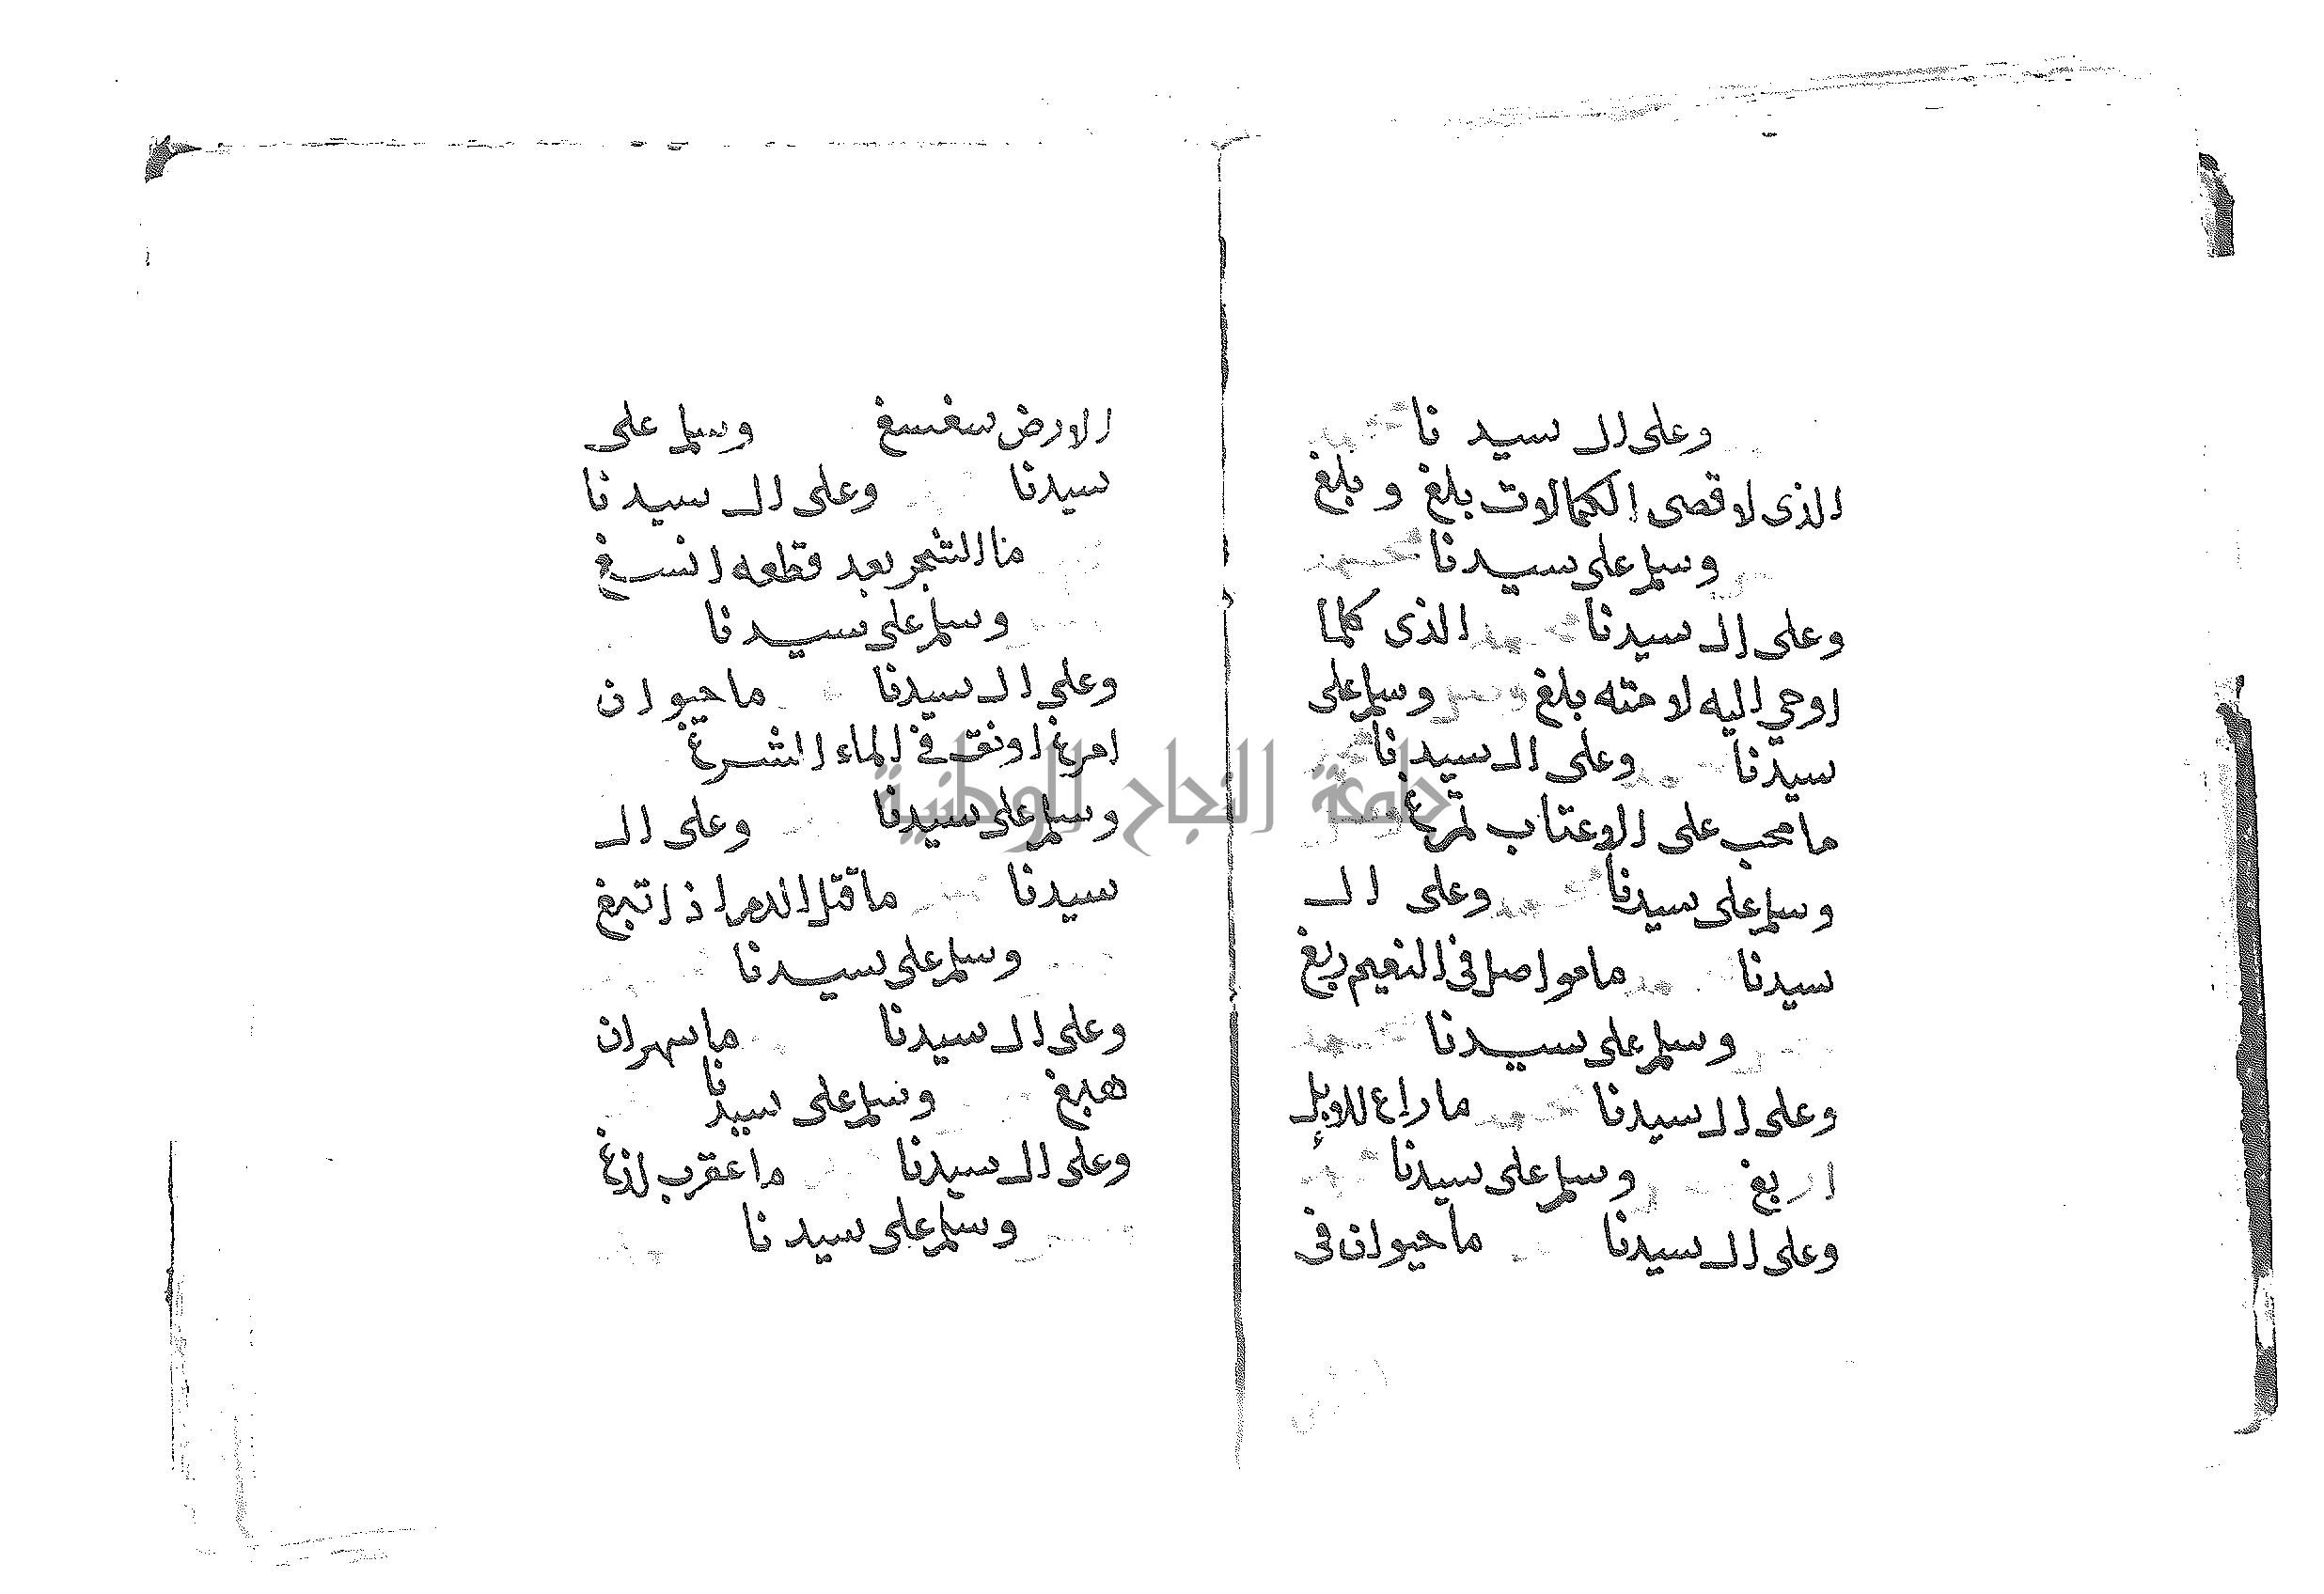 وعلى ال سيدنا
الذى لاقصى الكمالات بلغ وبلغ
وسلم على سيدنا
وعلى ال سيدنا الذى كلما
اوحي اليه لامته بلغ وسلم على
سيدنا وعلى ال سيدنا
ما محب على الاعتاب تمرغ
وسلم على سيدنا وعلى ال
سيدنا ما مواصل فى النعيم ربغ
وسلم على سيدنا
وعلى ال سيدنا ما راع للابل
اربغ وسلم على سيدنا
وعلى ال سيدنا ما حيوان فى
الارض سغسغ وسلم على
سيدنا وعلى ال سيدنا
ما الشجر بعد قطعه انسغ
وسلم على سيدنا
وعلى ال سيدنا ما حيوان
امرغ اونق في الماء الشرغ
وسلم على سيدنا وعلى ال
سيدنا ما قتل الدم اذا تبغ
وسلم على سيدنا
وعلى ال سيدنا ما سهران
هبغ وسلم على سيدنا
وعلى ال سيدنا ما عقرب لدغ
وسلم على سيدنا
جامعة النجاح الوطنية